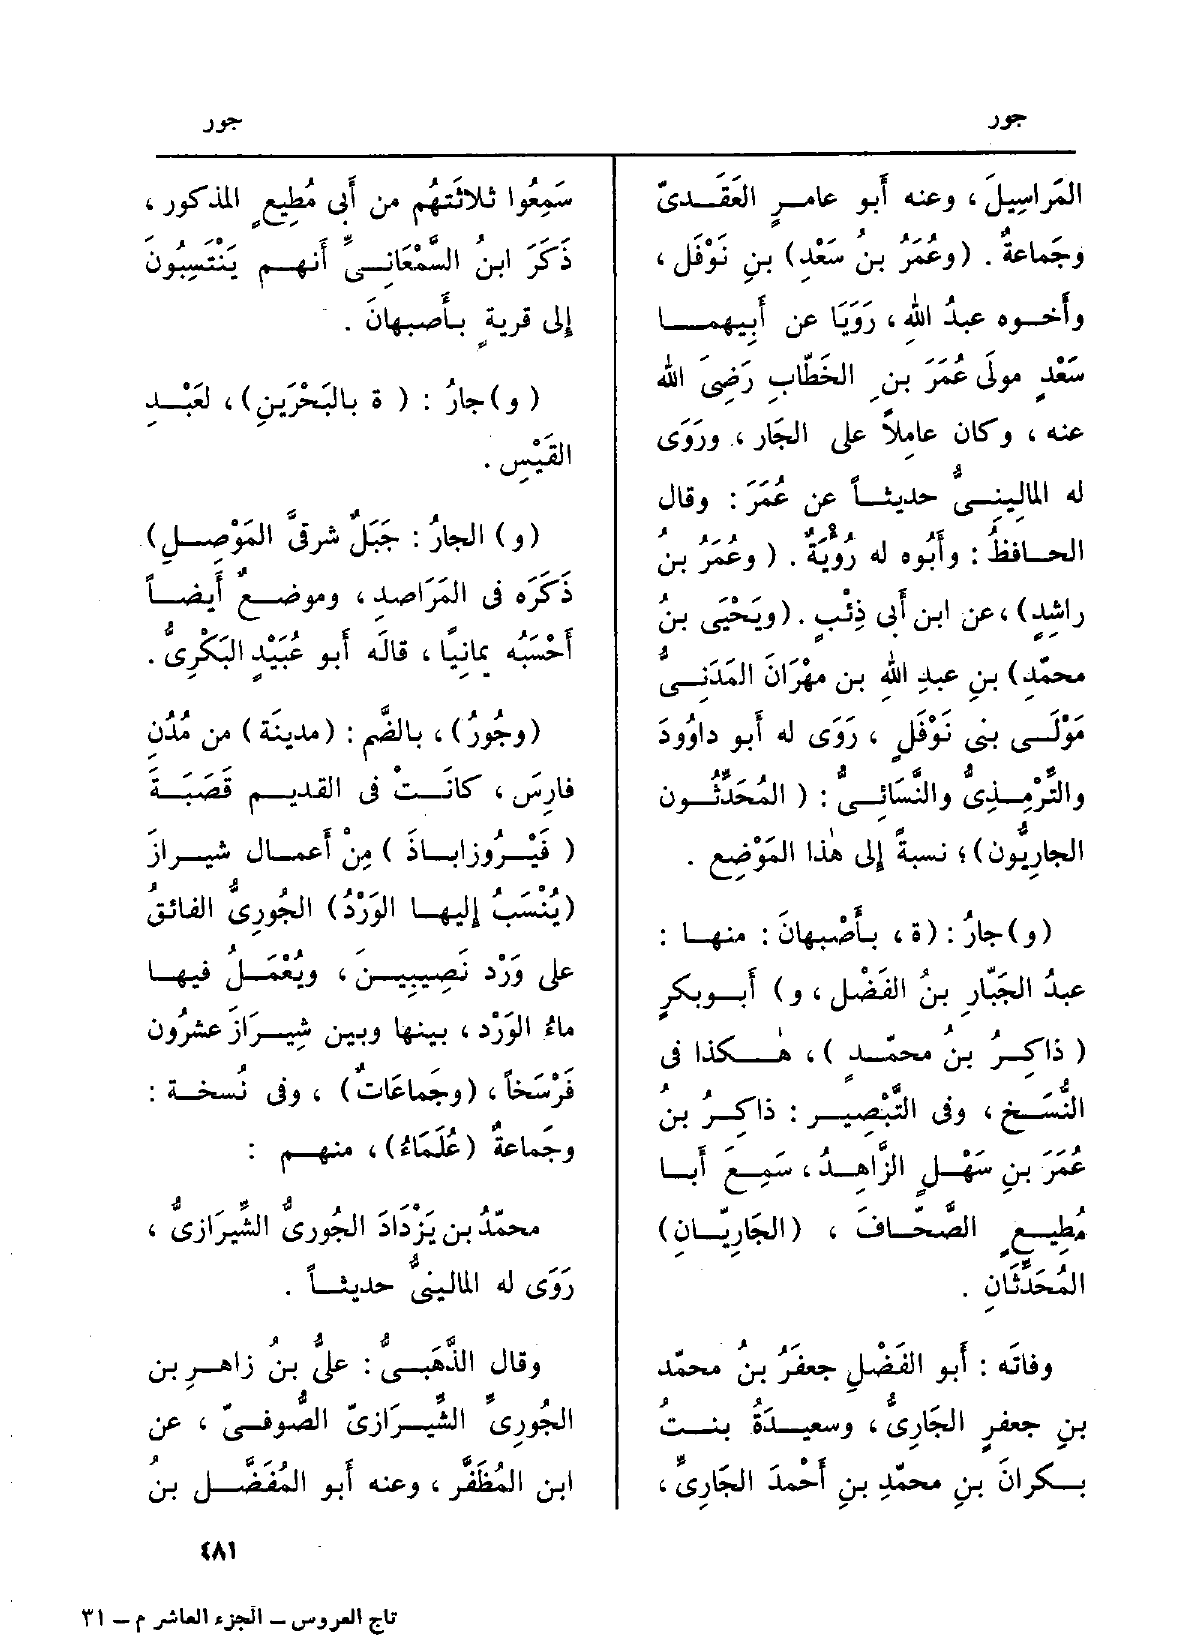 جور
جور
المَراسِيلَ ، وعنه أبو عامرٍ العَقَدىّ
وجَماعةٌ . (وعُمَرُ بنُ سَعْدِ) بنِ نَوْفَل ،
وأخوه عبدُ اللهِ ، رَوَيَا عن أَبيهما
سَعْدٍ مولَى عُمَرَ بنِ الخَطّابِ رَضِىَ الله
عنه ، وكان عاملاً على الجَار ، ورَوَى
له المالِينِىُّ حديثاً عن عُمَرَ : وقال
الحافظُ : وأَبُوه له رُؤْيَةٌ . (وعُمَرُ بنُ
راشِدٍ) ، عن ابن أَبى ذِئْبٍ . (ويَحْيَى بنُ
محمّدِ) بنِ عبدِ اللهِ بن مِهْرَانَ المَدَنِىُّ
مَوْلَى بنى نَوْفَلٍ ، رَوَى له أَبو داوُودَ
والتِّرْمِذِىُّ والنَّسَائِىُّ : ( المُحَدِّثُون
الجارِيُّون) ؛ نسبةً إلى هٰذا المَوْضِع .
(و) جارُ : (ة ، بأَصْبهانَ : منها :
عبدُ الجَبّارِ بنُ الفَضْلِ ، و) أَبوبكرٍ
( ذاكِرُ بنُ محمّدٍ ) ، هٰكذا فى
النُّسَخِ ، وفى التَّبْصِيرِ : ذاكِرُ بنُ
عُمَرَ بنِ سَهْلٍ الزّاهِدُ ، سَمِعَ أَبا
مُطِيعٍ الصَّحّافَ ، (الجَارِيّانِ)
المُحَدِّثَانِ .
وفاتَه : أَبو الفَضْلِ جعفرُ بنُ محمّد
بنِ جعفرٍ الجَارِىُّ ، وسعيدَةُ بنتُ
بكرانَ بنِ محمّدِ بنِ أَحْمدَ الجَارِىِّ ،
سَمِعُوا ثلاثَتهُم من أَبى مُطِيعٍ المذكور ،
ذَكَرَ ابنُ السَّمْعَانىِّ أَنهم يَنْتَسِبُونَ
إلى قريةٍ بأَصبهانَ .
( و) جارُ : ( ة بالبَحْرَينِ) ، لعَبْدِ
القَيْسِ .
(و) الجارُ : جَبَلٌ شرقىَّ المَوْصِلِ)
ذَكَرَه فى المَرَاصِدِ ، وموضعٌ أَيضاً
أَحْسَبُه يمانيًا ، قالَه أَبو عُبَيْدٍ البَكْرِىُّ .
(وجُورُ) ، بالضّم : (مدينَة) من مُدُنِ
فارِسَ ، كانَتْ فى القديمِ قَصَبَةَ
( فَيْرُوزاباذَ ) مِنْ أَعمال شيرازَ
(يُنْسَبُ إليها الوَرْدُ) الجُورِىُّ الفائقُ
على وَرْد نَصِيبِينَ ، ويُعْمَلُ فيها
ماءُ الوَرْد ، بينها وبين شِيرَازَ عشرُون
فَرْسَخاً ، (وجَماعَاتٌ) ، وفى نُسخة :
وجَماعةٌ (عُلَمَاءُ) ، منهم :
محمّدُ بن يَزْدَادَ الجُورىُّ الشِّيرَازىُّ ،
رَوَى له المالينىُّ حديثاً .
وقال الذَّهَبىُّ : علىُّ بنُ زاهرِ بن
الجُورِىِّ الشِّيرَازىّ الصُّوفىّ ، عن
ابن المُظَفَّر ، وعنه أَبو المُفَضَّل بنُ
٤٨١
تاج العروس – الجزء العاشر م – ٣١